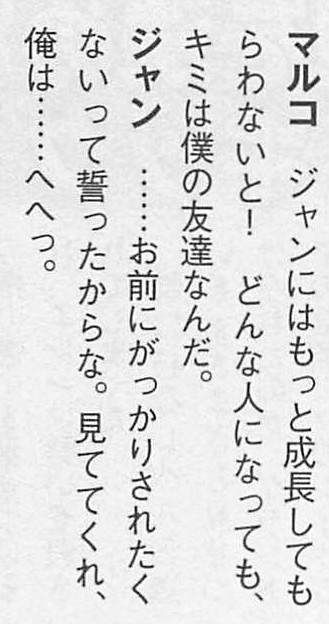 マルコ　ジャンにはもっと成長しても
らわないと！　どんな人になっても、
キミは僕の友達なんだ。
ジャン　……お前にがっかりされたく
ないって誓ったからな。見ててくれ、
俺は……へへっ。